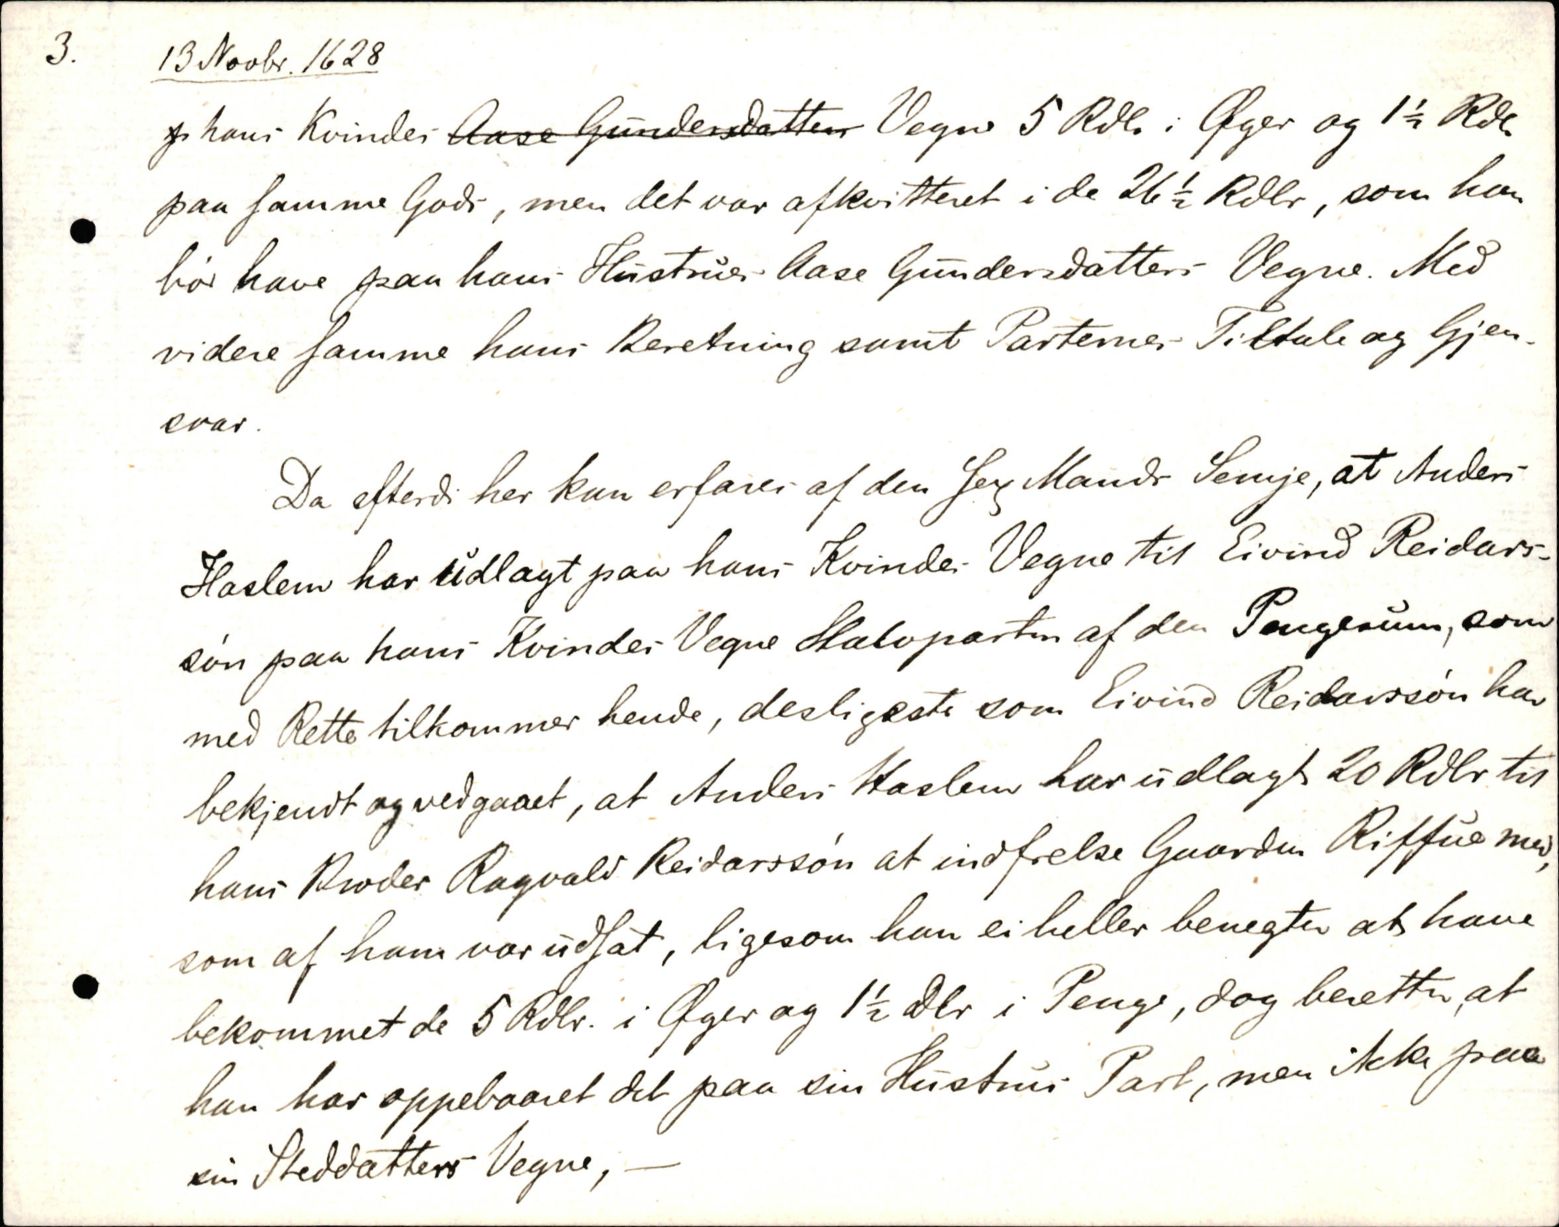 3. 13 Novbr. 1628
p hans Kvindes Aase Gundersdatters Vegne 5 Rdlr i Øger og 1½ Rdlr
paa samme Gods, men det var afkvitteret i de 26½ Rdlr, som han
bör have paa hans Hustrues Aase Gundersdatters Vegne. Med
videre samme hans Beretning samt Parternes Tiltale og Gjen-
svar.
Da efterdi her kan erfares af den Sex Mands Semje, at Anders
Haslem har udlagt paa hans Kvindes Vegne til Eivind Reidars-
sön paa hans Kvindes Vegne Halvparten af den Pengesum, som
med Rette tilkommer hende, desligeste som Eivind Reidarssön har
bekjendt og vedgaaet, at Anders Haslem har udlagt 20 Rdlr til
hans Broder Ragvald Reidarssön at indfrelse Gaarden Riffue med,
som af ham var udsat, ligesom han ei heller benegter at have
bekommet de 5 Rdlr. i Øger og 1½ Dlr i Penge, dog beretter, at
han har oppebaaret det paa sin Hustrus Part, men ikke paa
sin Steddatters Vegne, —